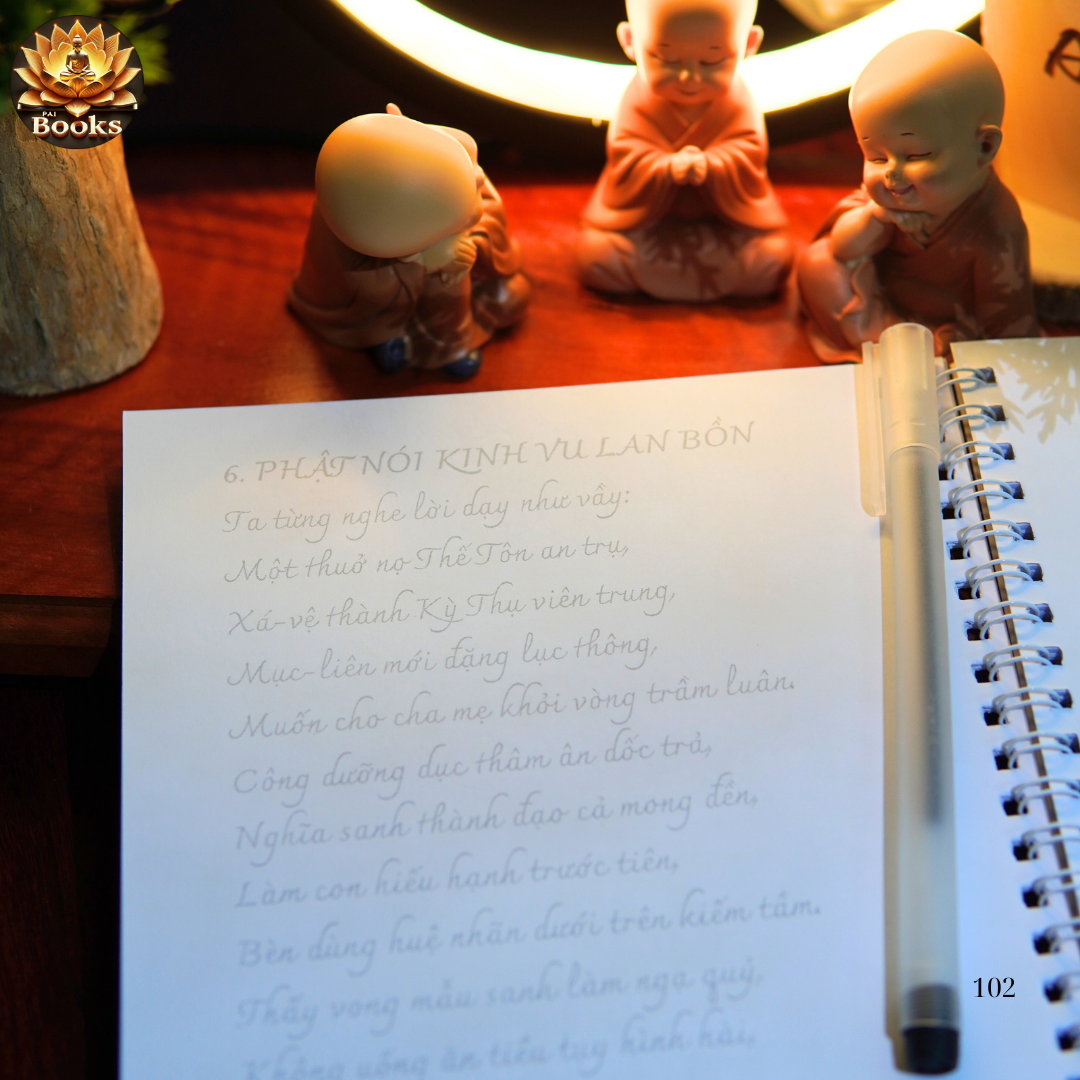 PAI
Books
6. PHẬT NÓI KINH VU LAN BỒN
Ta từng nghe lời dạy như vầy:
Một thuở nọ Thế Tôn an trụ,
Xá-vệ thành Kỳ Thụ viên trung,
Mục-liên mới đặng lục thông,
Muốn cho cha mẹ khỏi vòng trầm luân.
Công dưỡng dục thâm ân dốc trả,
Nghĩa sanh thành đạo cả mong đền,
Làm con hiếu hạnh trước tiên,
Bèn dùng huệ nhãn dưới trên kiếm tầm.
Thấy vong mẫu sanh làm ngạ quỷ,
Không uống ăn tiều tuỵ hình hài,
102